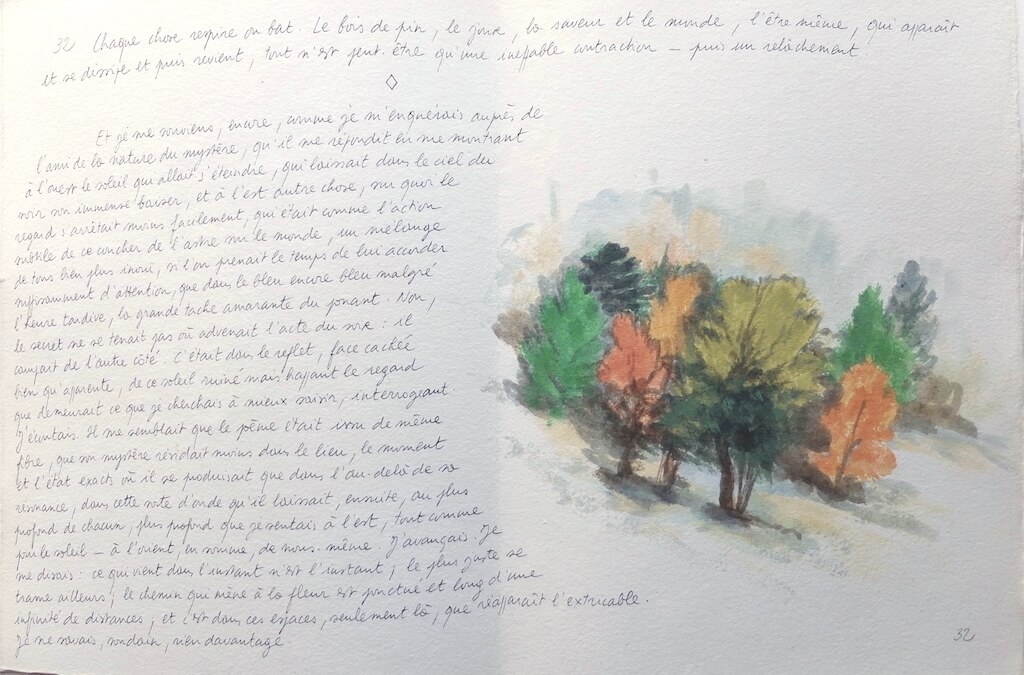 32 Chaque chose respire ou bat. Le bois de pin, le jour, la saveur et le monde, l'être même, qui apparaît
et se dissipe et puis revient, tout n'est peut-être qu'une ineffable contraction – puis un relâchement
◇
Et je me souviens, encore, comme je m'enquérais auprès de
l'ami de la nature du mystère, qu'il me répondit en me montrant
à l'ouest le soleil qui allait s'éteindre, qui laissait dans le ciel du
soir son immense baiser, et à l'est autre chose, sur quoi le
regard s'arrêtait moins facilement, qui était comme l'action
subtile de ce coucher de l'astre sur le monde, un mélange
de tons bien plus inouï, si l'on prenait le temps de lui accorder
suffisamment d'attention, que dans le bleu encore bleu malgré
l'heure tardive, la grande tache amarante du ponant. Non,
le secret ne se tenait pas où advenait l'acte du soir : il
campait de l'autre côté. C'était dans le reflet, face cachée
bien qu'apparente, de ce soleil ruiné mais happant le regard
que demeurait ce que je cherchais à mieux saisir, interrogeant
J'écoutais. Il me semblait que le poème était issu de même
fibre, que son mystère résidait moins dans le lieu, le moment
et l'état exacts où il se produisait que dans l'au-delà de sa
résonance, dans cette sorte d'onde qu'il laissait, ensuite, au plus
profond de chacun, plus profond que je sentais à l'est, tout comme
pour le soleil – à l'orient, en somme, de nous-même. J'avançais. Je
me disais : ce qui vient dans l'instant n'est l'instant ; le plus juste se
trame ailleurs ; le chemin qui mène à la fleur est ponctué et long d'une
infinité de distances ; et c'est dans ces espaces, seulement là, que réapparaît l'extricable.
Je ne savais, soudain, rien davantage
32